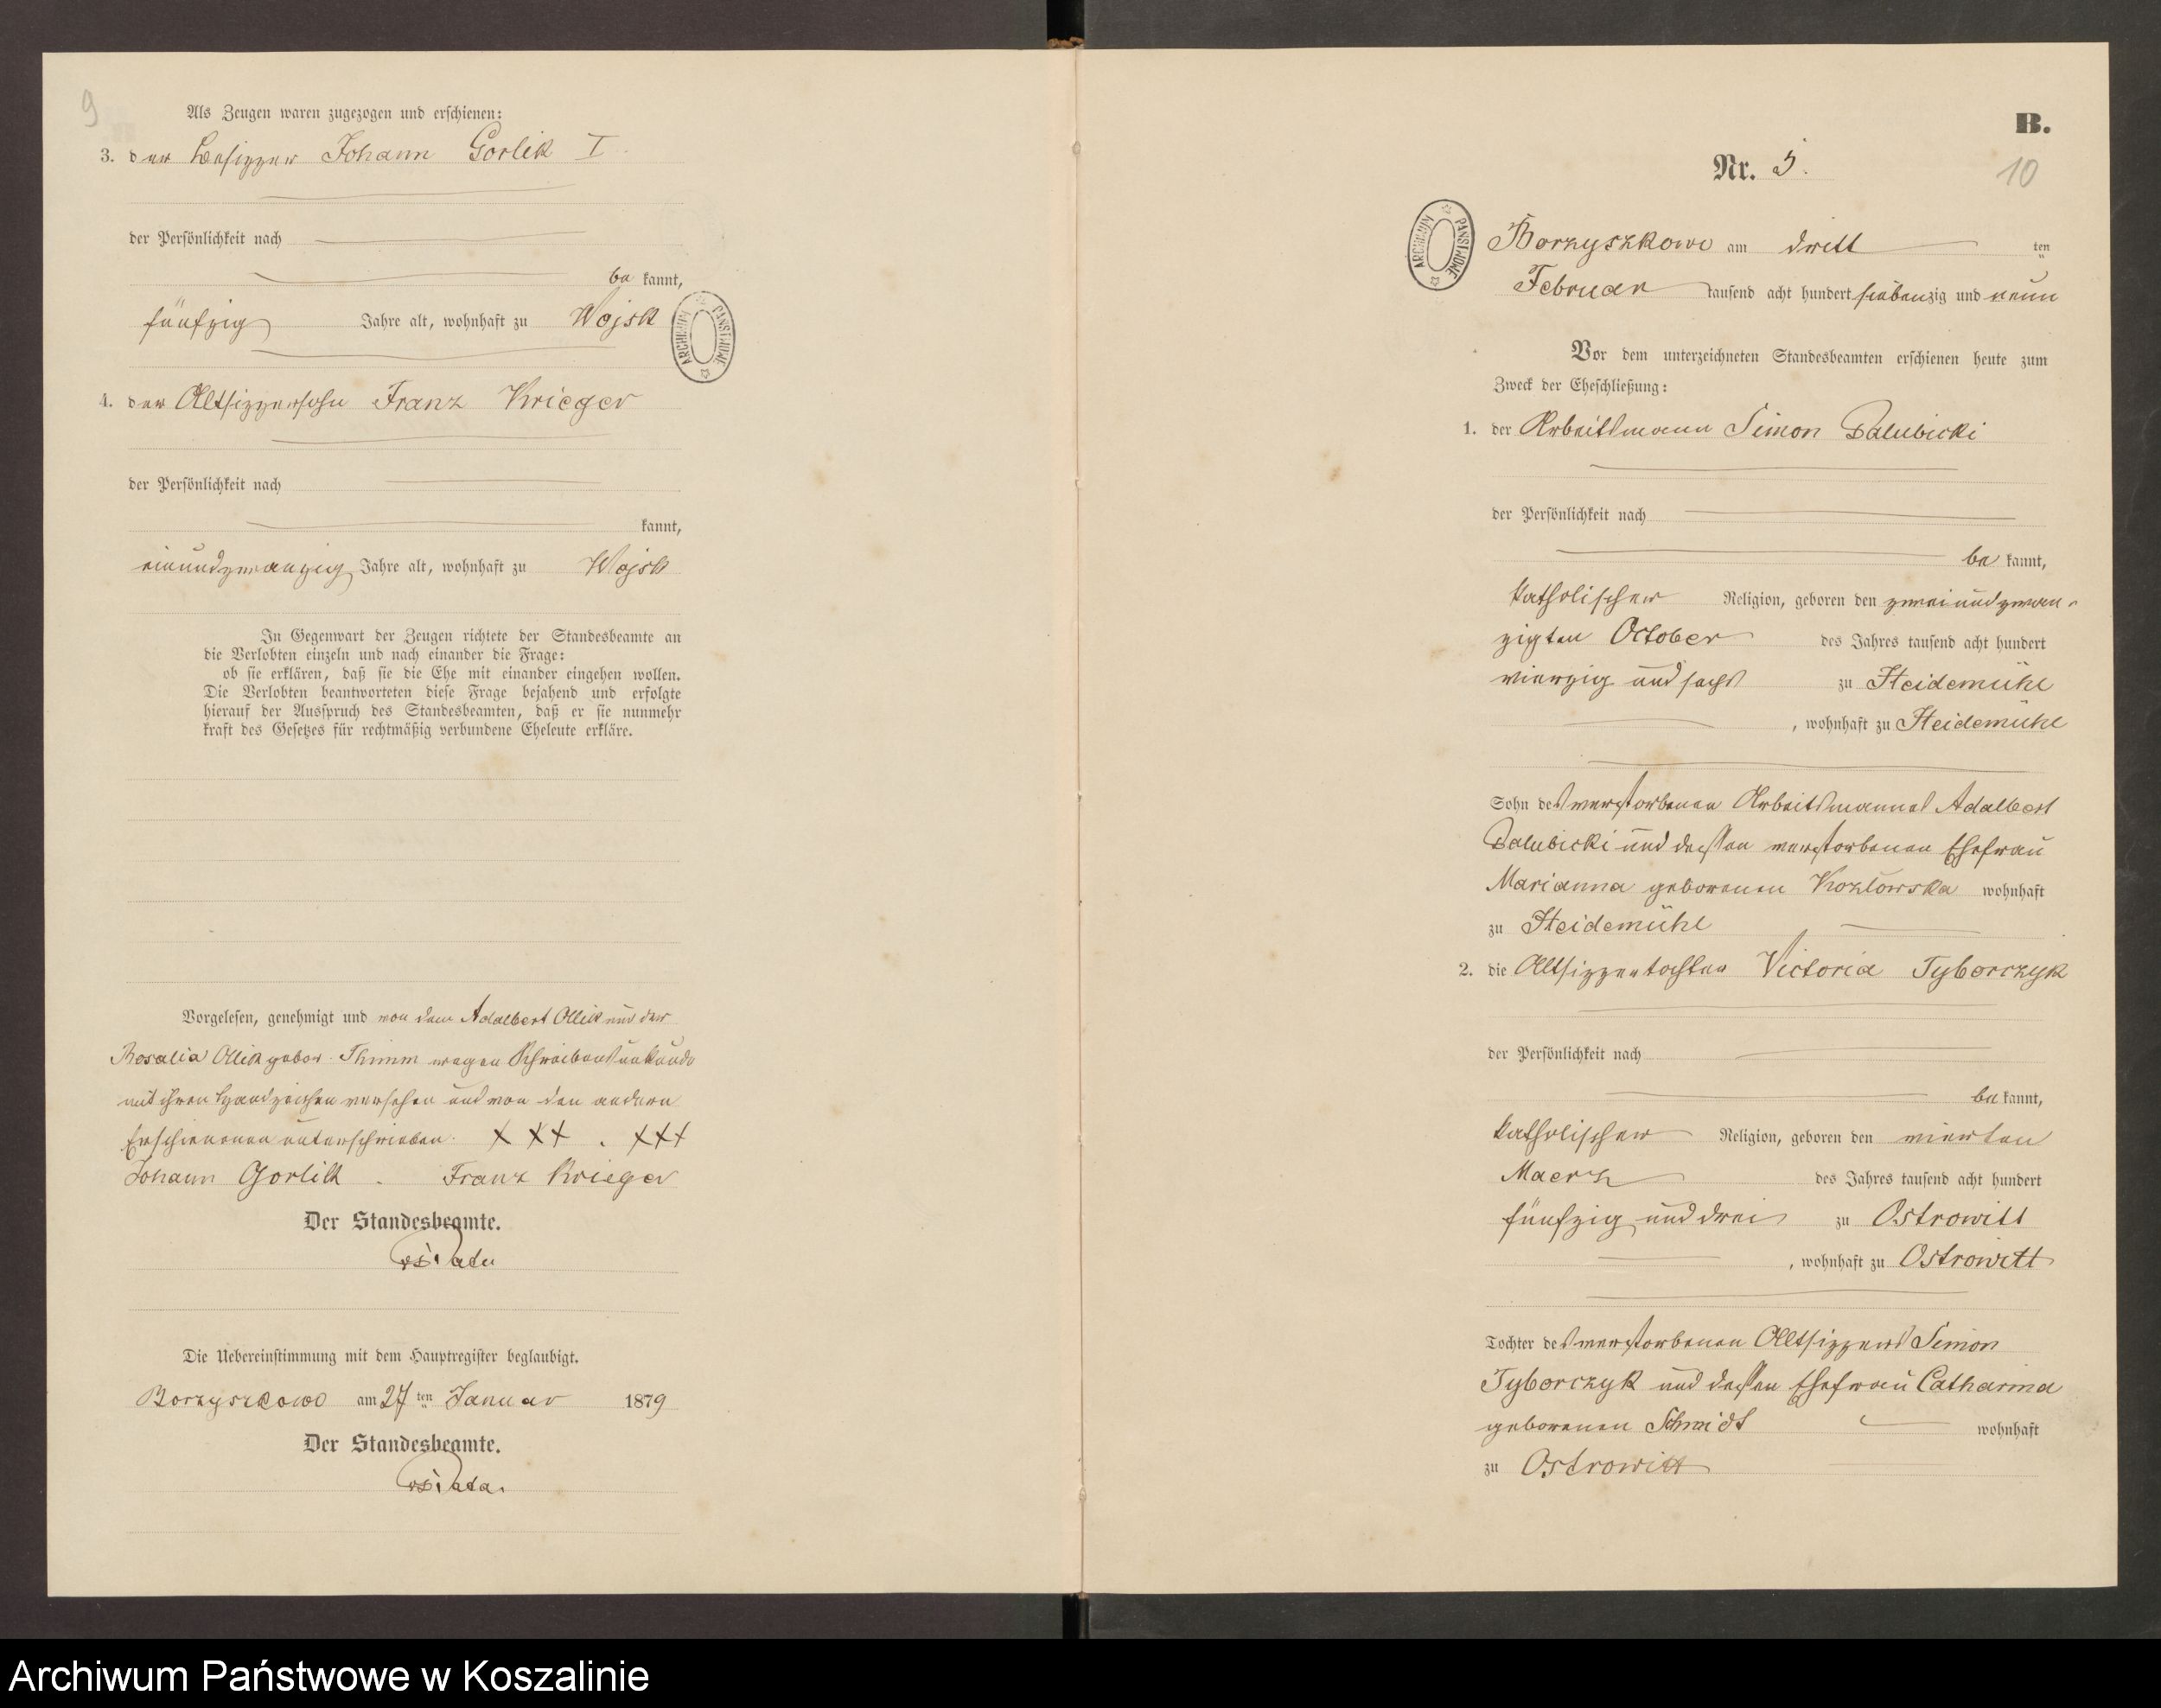 9
Als Zeugen waren zugezogen und erschienen:
3. der Besitzer Johann Gorlik I
der Persönlichkeit nach
be kannt,
fünfzig Jahre alt, wohnhaft zu Wojsk
ARCHIWUM PAŃSTWOWE
4. der Altsitzersohn Franz Krieger
der Persönlichkeit nach
kannt,
einundzwanzig Jahre alt, wohnhaft zu Wojsk
In Gegenwart der Zeugen richtete der Standesbeamte an
die Verlobten einzeln und nach einander die Frage:
ob sie erklären, daß sie die Ehe mit einander eingehen wollen.
Die Verlobten beantworteten diese Frage bejahend und erfolgte
hierauf der Ausspruch des Standesbeamten, daß er sie nunmehr
kraft des Gesetzes für rechtmäßig verbundene Eheleute erkläre.
Vorgelesen, genehmigt und von dem Adalbert Ollik und der
Rosalia Ollik gebor. Thimm wegen Schreibensunkunde
mit ihren Handzeichen versehen und von den andern
Erschienenen unterschrieben. XXX . XXX
Johann Gorlik . Franz Krieger
Der Standesbeamte.
Die Uebereinstimmung mit dem Hauptregister beglaubigt.
Borzyszkowo am 27 ten Januar 1879
Der Standesbeamte.
B.
Nr. 5.
10
ARCHIWUM PAŃSTWOWE
Borzyszkowo am dritt ten
Februar tausend acht hundert siebenzig und neun
Vor dem unterzeichneten Standesbeamten erschienen heute zum
Zweck der Eheschließung:
1. der Arbeitsmann Simon Dalubicki
der Persönlichkeit nach
be kannt,
katholischer Religion, geboren den zweiundzwan-
zigten October des Jahres tausend acht hundert
vierzig und sechs zu Heidemühl
, wohnhaft zu Heidemühl
Sohn des verstorbenen Arbeitsmannes Adalbert
Dalubicki und dessen verstorbenen Ehefrau
Marianna geborenen Kozlowska wohnhaft
zu Heidemühl
2. die Altsitzertochter Victoria Tyborczyk
der Persönlichkeit nach
be kannt,
katholischer Religion, geboren den vierten
Maerz des Jahres tausend acht hundert
fünfzig und drei zu Ostrowitt
, wohnhaft zu Ostrowitt
Tochter des verstorbenen Altsitzers Simon
Tyborczyk und dessen Ehefrau Catharina
geborenen Schmidt wohnhaft
zu Ostrowitt
Archiwum Państwowe w Koszalinie